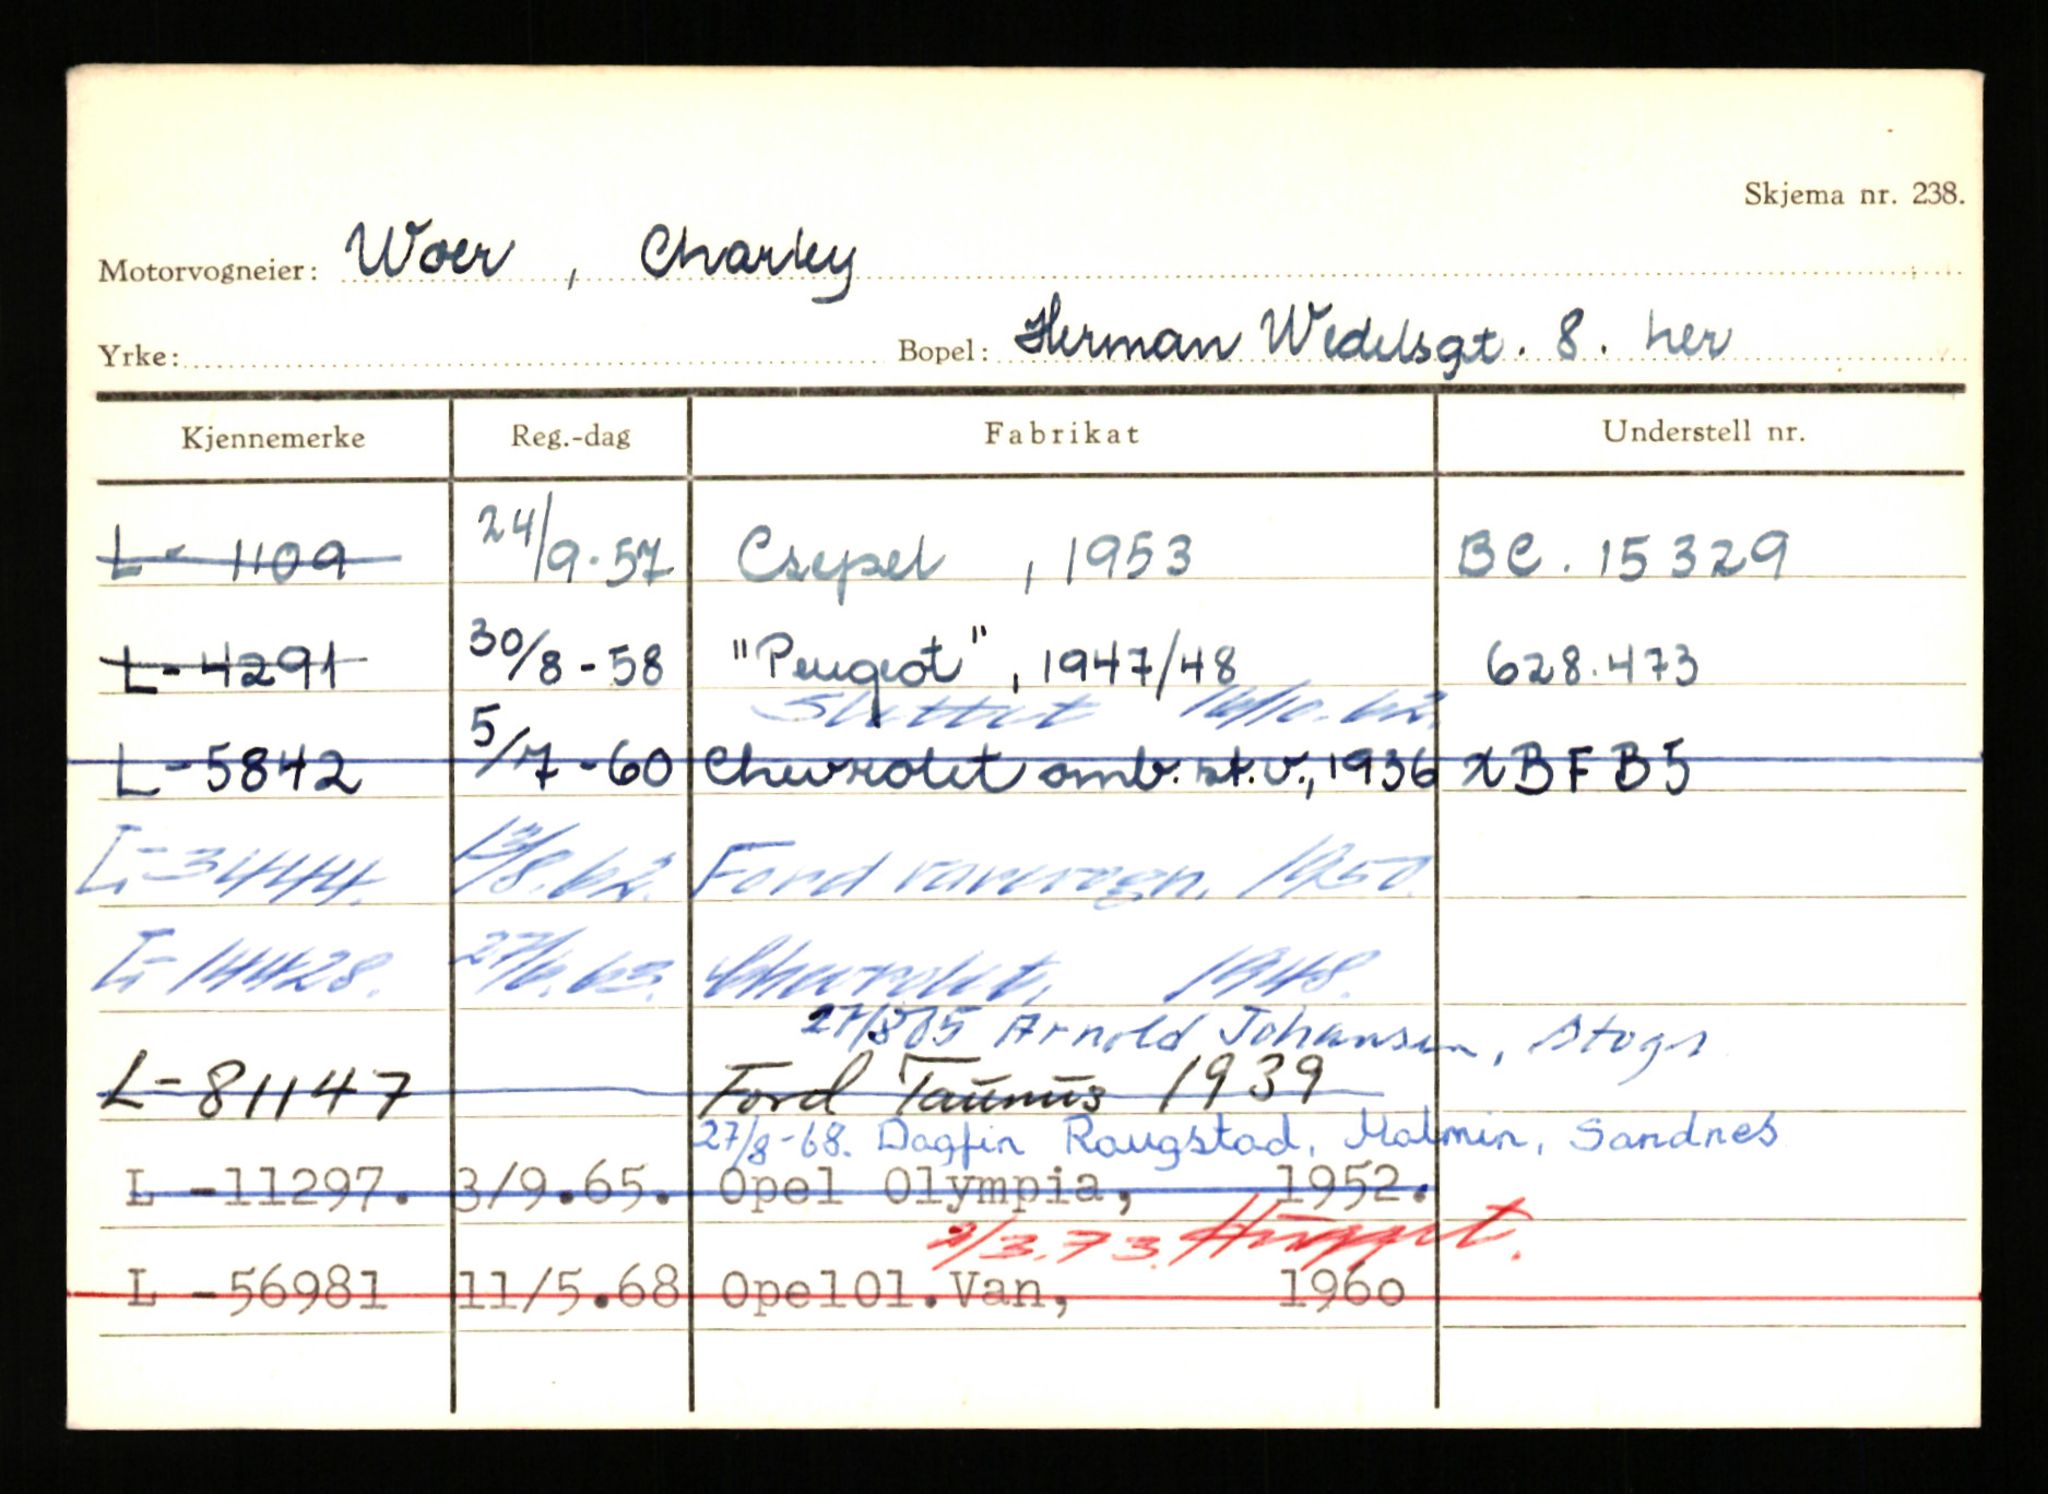 Skjema nr. 238.
Motorvogneier: Woer, Charley
Yrke: Bopel: Herman Wedelsgt. 8. her
Kjennemerke Reg.-dag Fabrikat Understell nr.
L - 1109 24/9.57 Csepel, 1953 BC. 15329
L - 4291 30/8 - 58 "Peugeot", 1947/48 628.473
Slettet 16/10.62.
L - 5842 5/7 - 60 Chevrolet omb. st.v., 1936 xBFB5
L - 3444. 13/8.62. Ford varevogn. 1950.
L - 14428. 27/6.63. Chevrolet, 1948.
27/8 65 Arnold Johansen, Stogs
L - 81147 Ford Taunus 1939
27/8 - 68. Dagfin Raugstad, Malmin, Sandnes
L -11297. 3/9.65. Opel Olympia, 1952.
/3.73. Hugget.
L -56981 11/5.68 OpelOl.Van, 196o